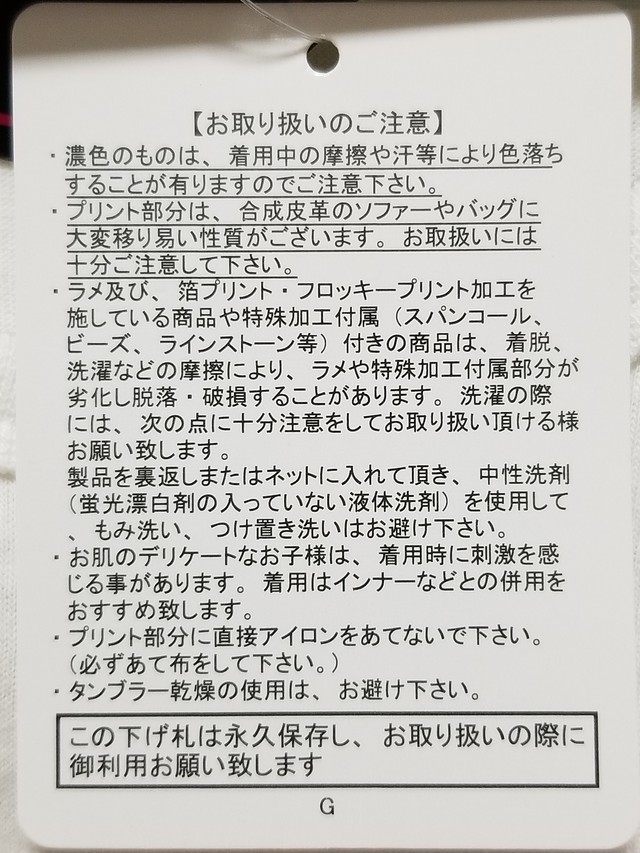 【お取り扱いのご注意】
・濃色のものは、着用中の摩擦や汗等により色落ち
することが有りますのでご注意下さい。
・プリント部分は、合成皮革のソファーやバッグに
大変移り易い性質がございます。お取扱いには
十分ご注意して下さい。
・ラメ及び、箔プリント・フロッキープリント加工を
施している商品や特殊加工付属（スパンコール、
ビーズ、ラインストーン等）付きの商品は、着脱、
洗濯などの摩擦により、ラメや特殊加工付属部分が
劣化し脱落・破損することがあります。洗濯の際
には、次の点に十分注意をしてお取り扱い頂ける様
お願い致します。
製品を裏返しまたはネットに入れて頂き、中性洗剤
（蛍光漂白剤の入っていない液体洗剤）を使用して
、もみ洗い、つけ置き洗いはお避け下さい。
・お肌のデリケートなお子様は、着用時に刺激を感
じる事があります。着用はインナーなどとの併用を
おすすめ致します。
・プリント部分に直接アイロンをあてないで下さい。
（必ずあて布をして下さい。）
・タンブラー乾燥の使用は、お避け下さい。
この下げ札は永久保存し、お取り扱いの際に
御利用お願い致します
G